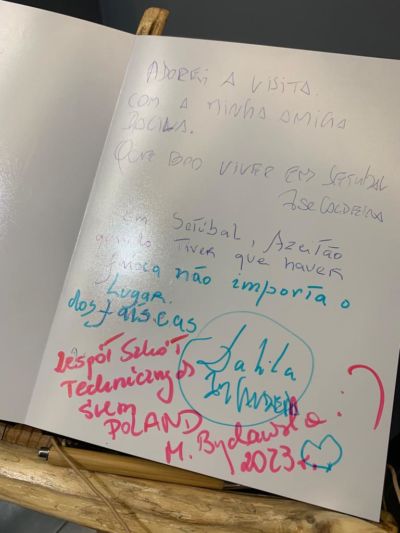 ADOREI A VISITA.
COM A MINHA AMIGA
QUE BOM VIVER EM SETUBAL
JOSE CALDEIRA
Em Setúbal, Azeitão
quando Tiver que haver
não importa o
Lugar.
dos faíscas
Zespół Szkół
Technicznych
Śrem
POLAND
M. Bydawska :)
2023 r.